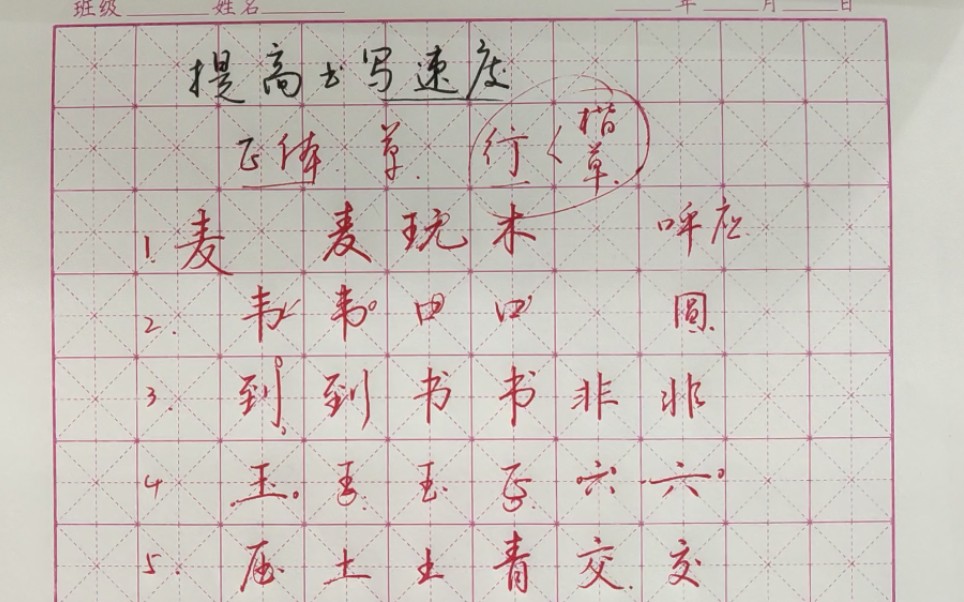 班级 姓名 年 月 日
提高书写速度
正体 草. 行 < 楷 草.
1. 麦 麦 玩 木 呼应.
2. 韦 韦 口 口 圆.
3. 到 到 书 书 非 非
4 玉. 玉. 玉 正 六 六
5. 压 土 土 青 交. 交